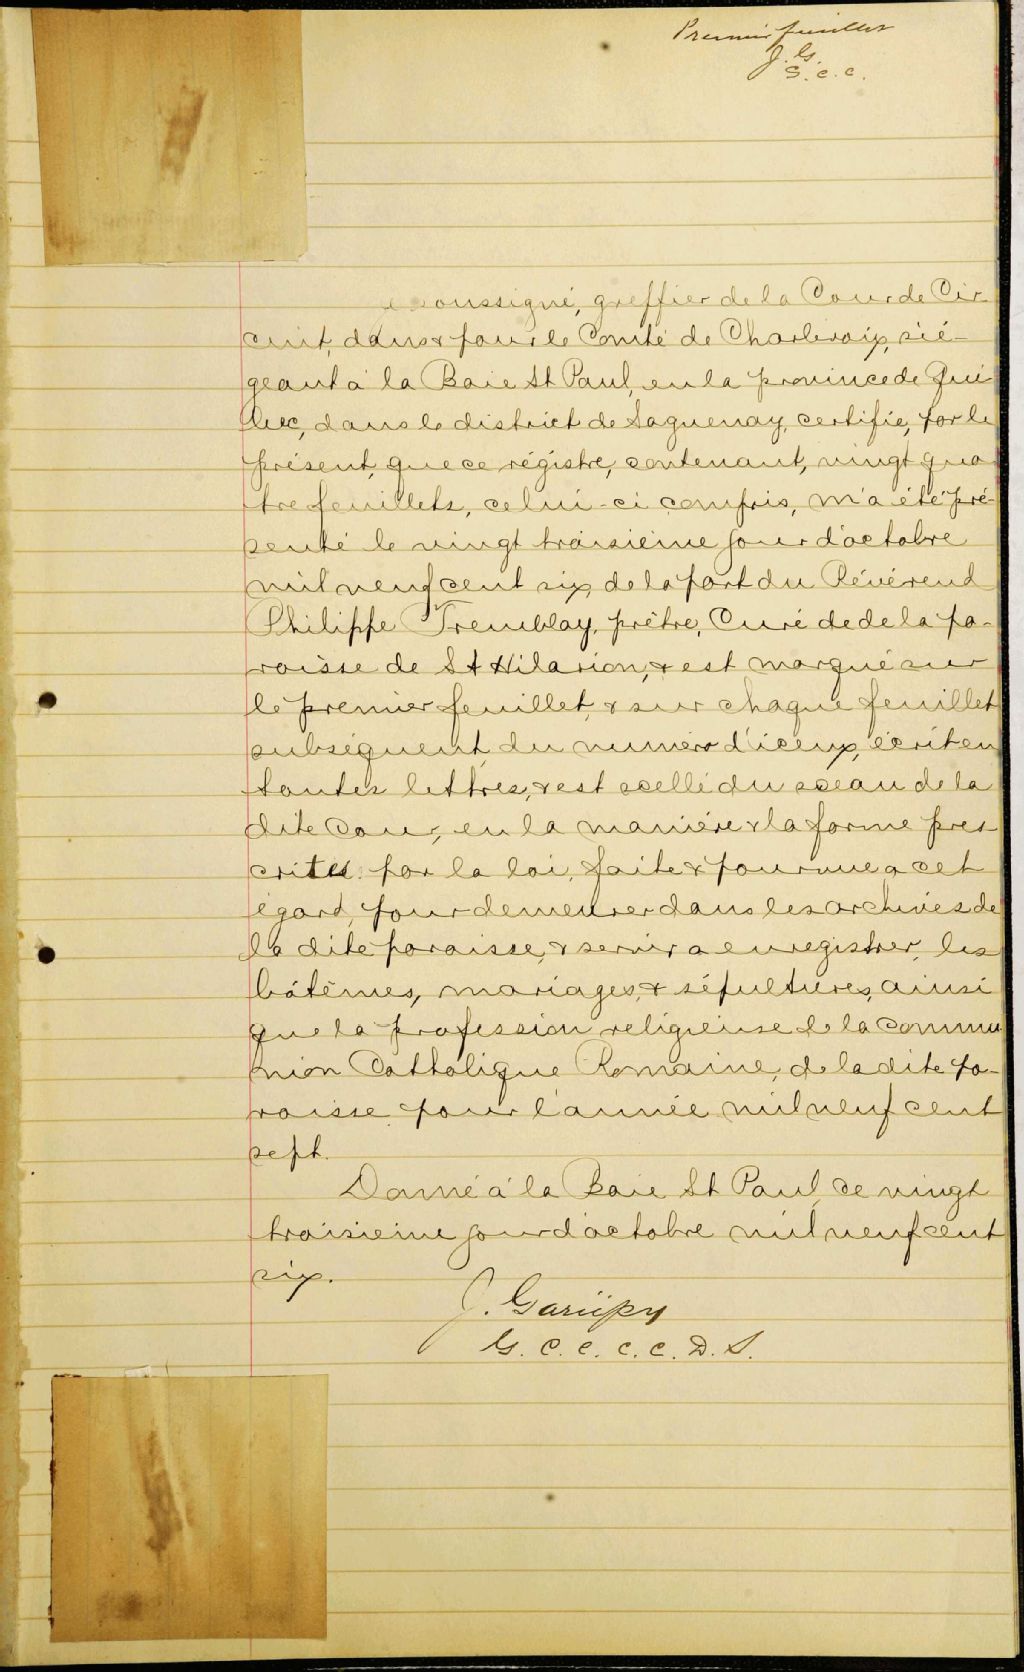 Premier feuillet
J. G.
G. C. C.
soussigné, greffier de la Cour de Cir
cuit, dans & pour le Comté de Charlevoix, sié-
geant à la Baie St Paul, en la province de Qué
bec, dans le district de Saguenay, certifie, par le
présent, que ce régistre, contenant, vingt qua
tre feuillets, celui-ci compris, m'a été pré-
senté le vingt troisième jour d'octobre
mil neuf cent six, de la part du Révérend
Philippe Tremblay, prêtre, Curé de de la pa-
roisse de St Hilarion, & est marqué sur
le premier feuillet, & sur chaque feuillet
subséquent, du numéro d'iceux, écrit en
toutes lettres, & est scellé du sceau de la
dite Cour, en la manière & la forme pres
crites par la loi, faite & pourvue a cet
égard, pour demeurer dans les archives de
la dite paroisse, & servir a enregistrer, les
bâtêmes, mariages, & sépultures, ainsi
que la profession religieuse de la commu
nion Catholique Romaine, de la dite pa-
roisse pour l'année mil neuf cent
sept.
Donné à la Baie St Paul, ce vingt
troisième jour d'octobre mil neuf cent
six.
J. Gariépy
G. C. C. C. C. D. S.